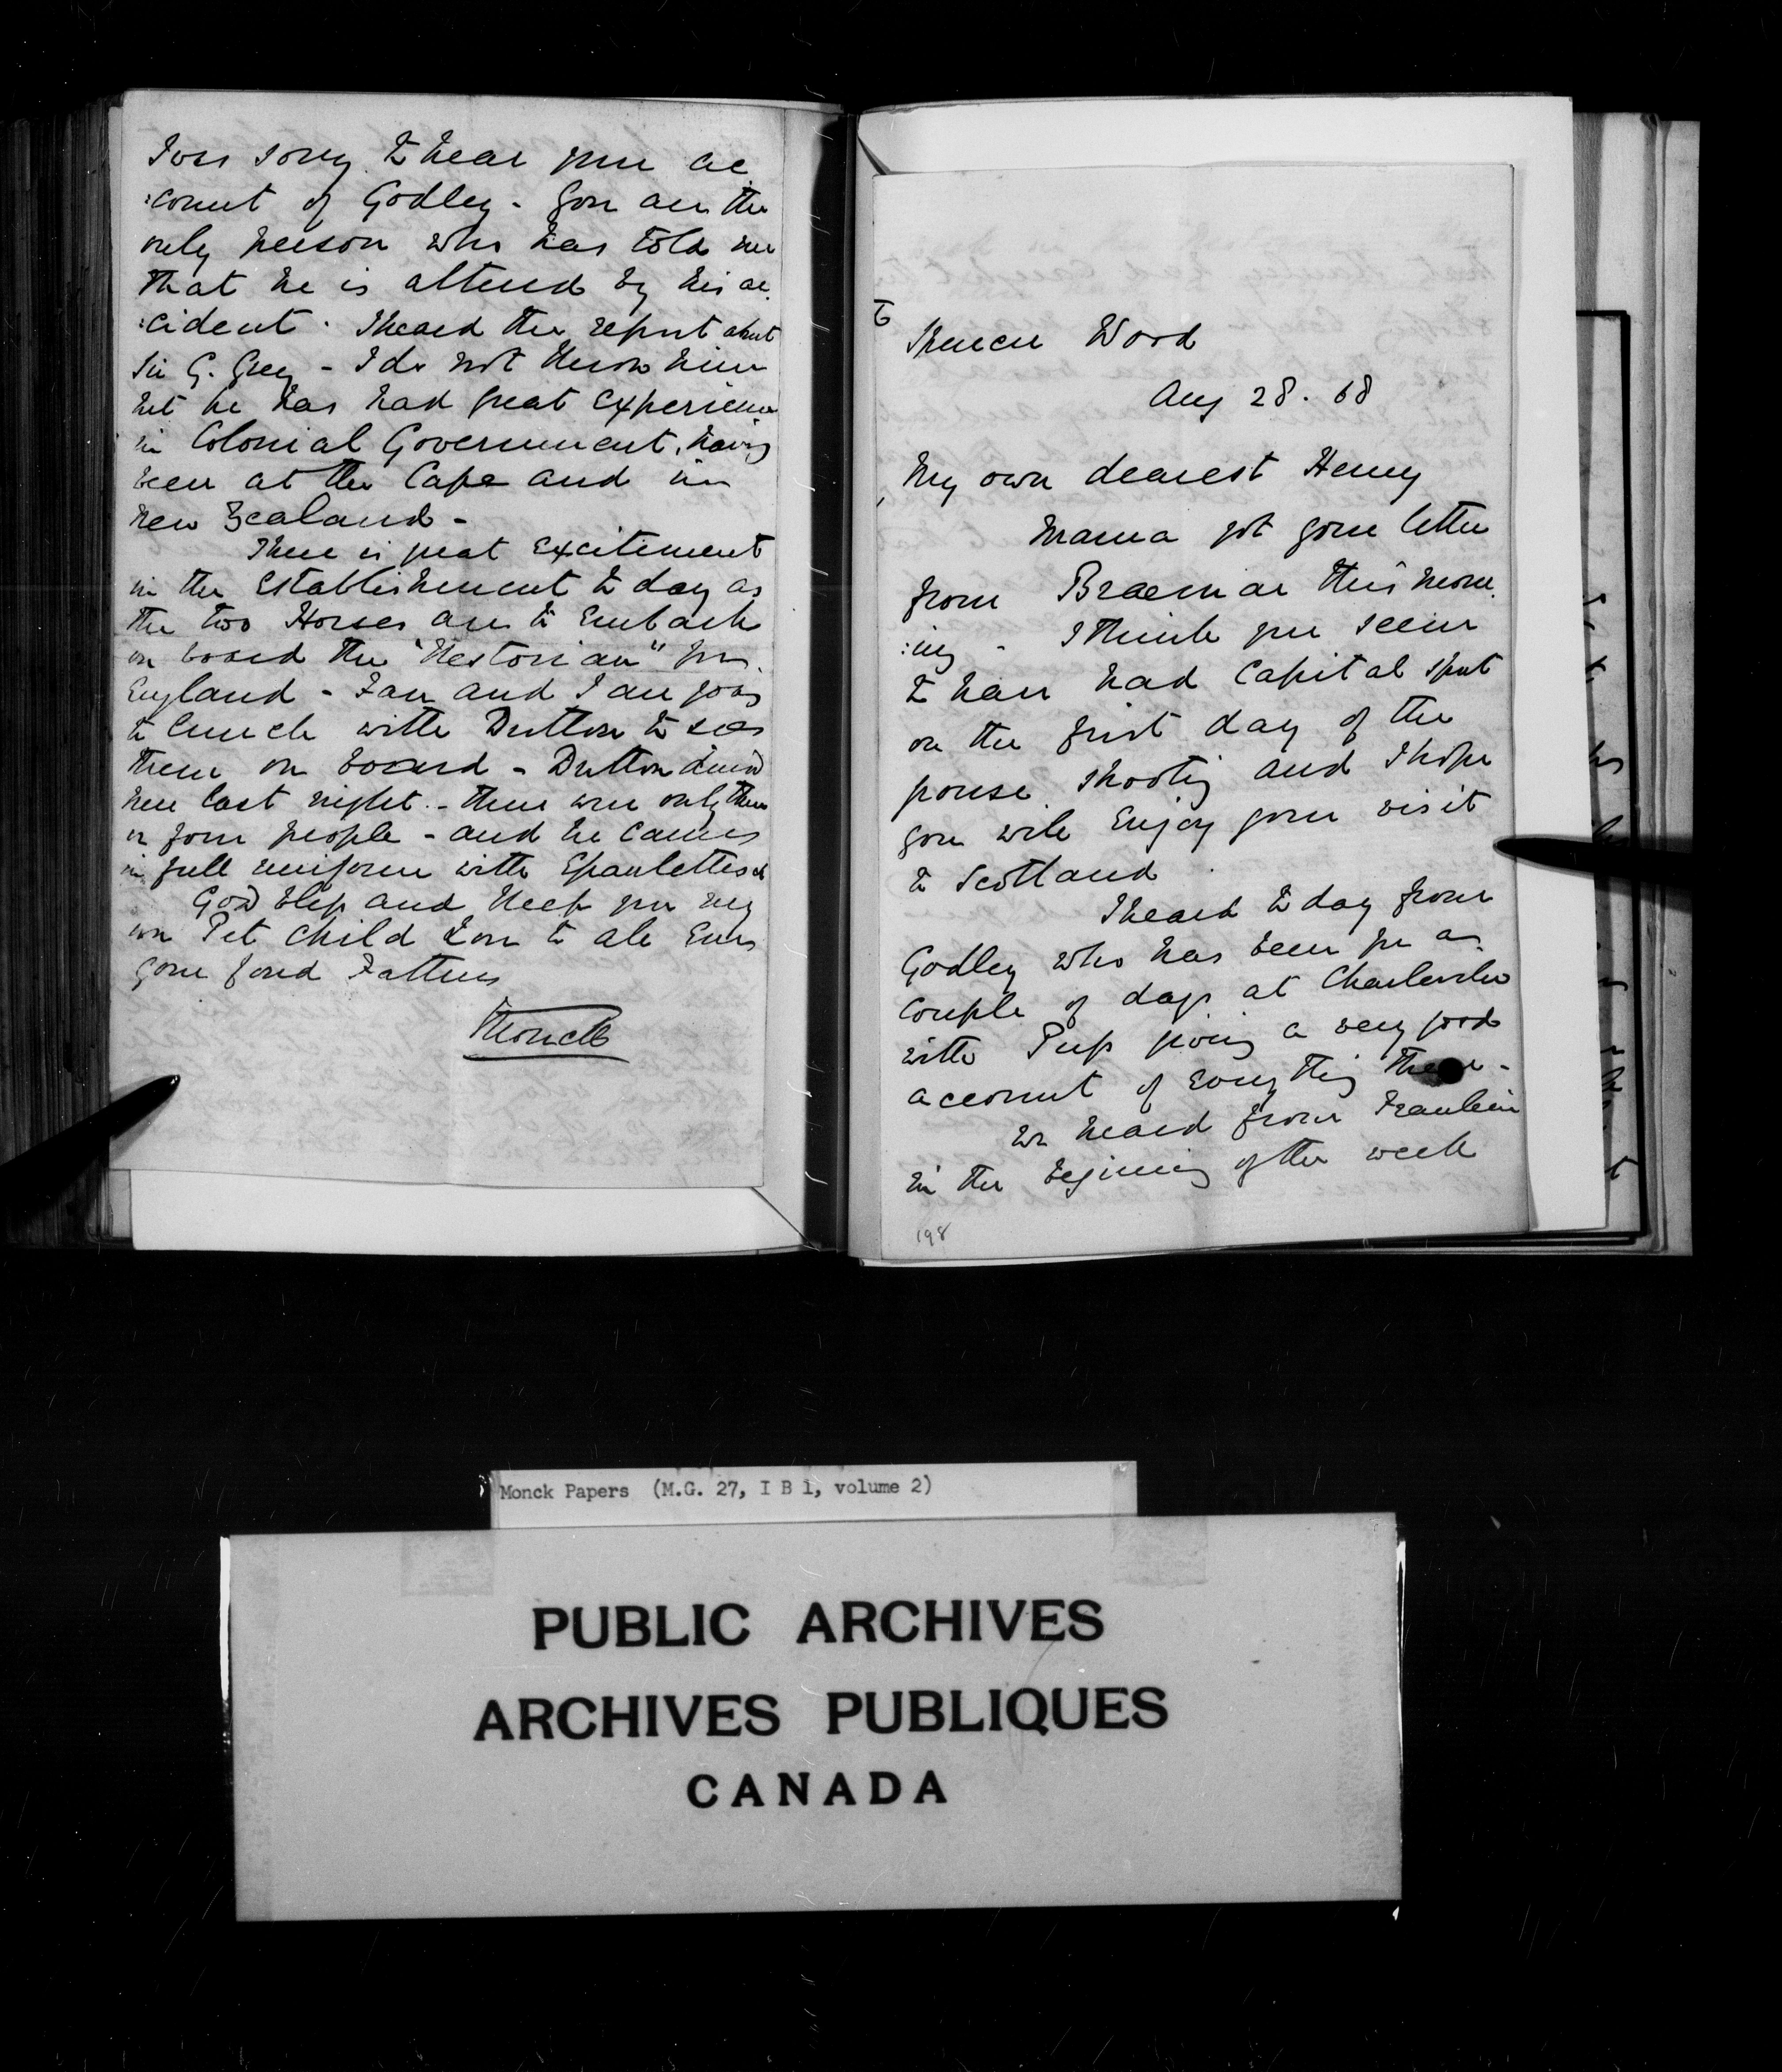 I was sorry to hear your ac
:count of Godley - You are the
only person who has told me
that he is altered by his ac
:cident. I heard the report about
Sir G. Grey - I do not know him
but he has had great experience
in Colonial Government, having
been at the Cape and in
New Zealand -
There is great excitement
in the Establishment to day as
the two Horses are to Embark
on board the "Nestorian" for
England - Fan and I are going
to lunch with Dutton to see
them on board - Dutton dined
here last night - there were only three
or four people - and he came
in full uniform with Epaulettes &c
God bless and keep you my
own Pet child Love to all Ever
your fond Father
Monck
Spencer Wood
Aug 28. 68
My own dearest Henry
Mama got your letter
from Braemar this morn
:ing - I think you seem
to have had capital sport
on the first day of the
grouse shooting and I hope
you will enjoy your visit
to Scotland
I heard to day from
Godley who has been for a
couple of days at Charleville
with Puss giving a very good
account of every thing there -
We heard from Franklin
in the begining of the week
198
Monck Papers (M.G. 27, I B 1, volume 2)
PUBLIC ARCHIVES
ARCHIVES PUBLIQUES
CANADA